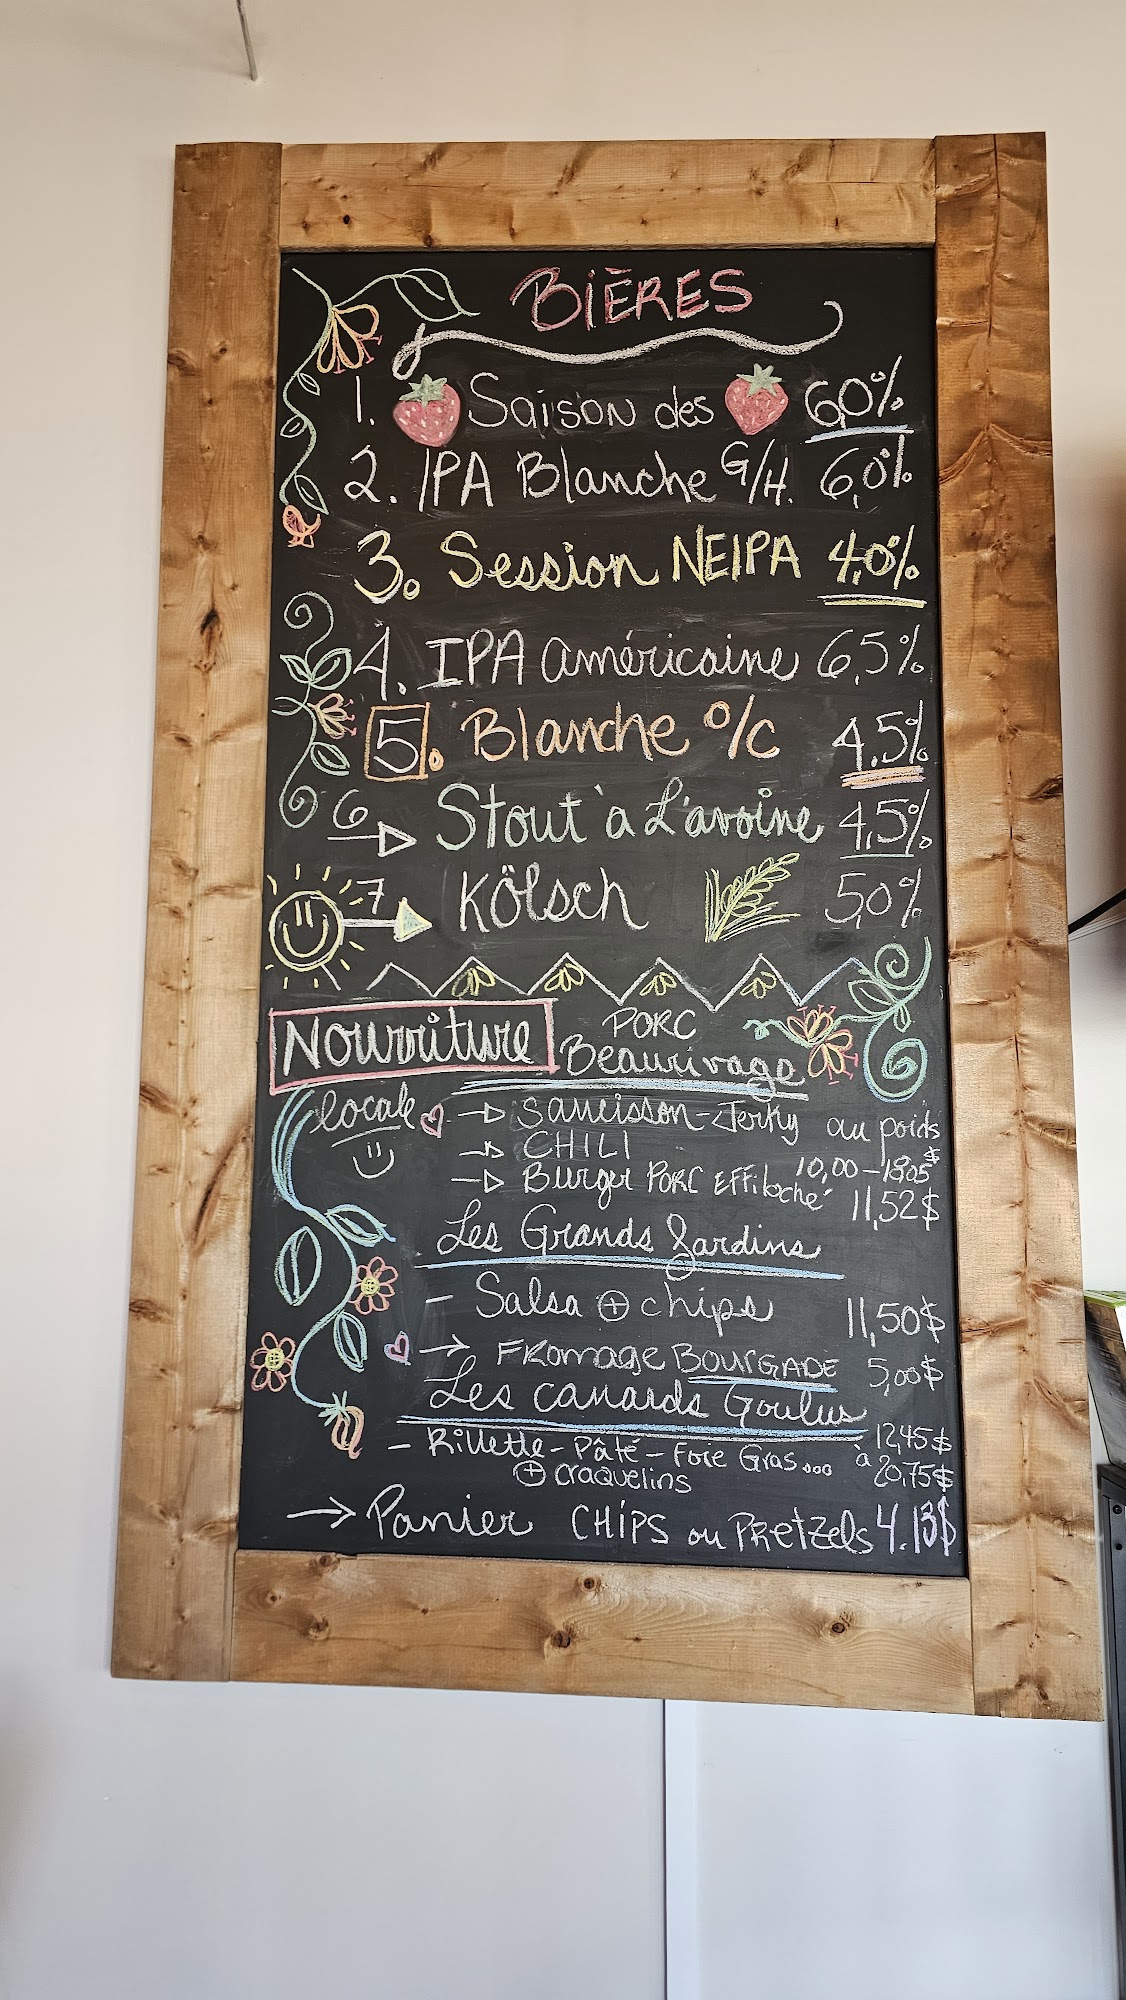 BIÈRES
1. Saison des 6,0%
2. IPA Blanche G/H. 6,0%
3. Session NEIPA 4,0%
4. IPA américaine 6,5%
5. Blanche O/C 4.5%
6 Stout à L'avoine 4,5%
7 Kölsch 5,0%
Nourriture
locale
PORC
Beaurivage
Saucisson-Jerky au poids
CHILI 10,00-18,05$
Burger PORC EFFiloché 11,52$
Les Grands Jardins
- Salsa + chips 11,50$
→ FRomage BOURGADE 5,00$
Les canards Goulus
- Rillette-Pâté-Foie Gras... 12,45$
+ craquelins à 20,75$
→ Panier CHIPS ou PRetzels 4.13$